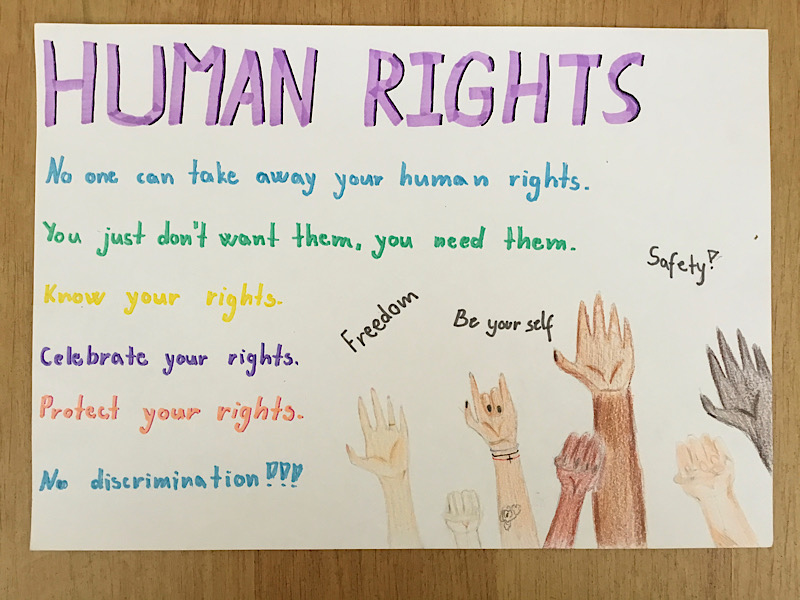 HUMAN RIGHTS
No one can take away your human rights.
You just don't want them, you need them.
Know your rights.
Celebrate your rights.
Protect your rights.
No discrimination!!!
Freedom
Be your self
Safety!